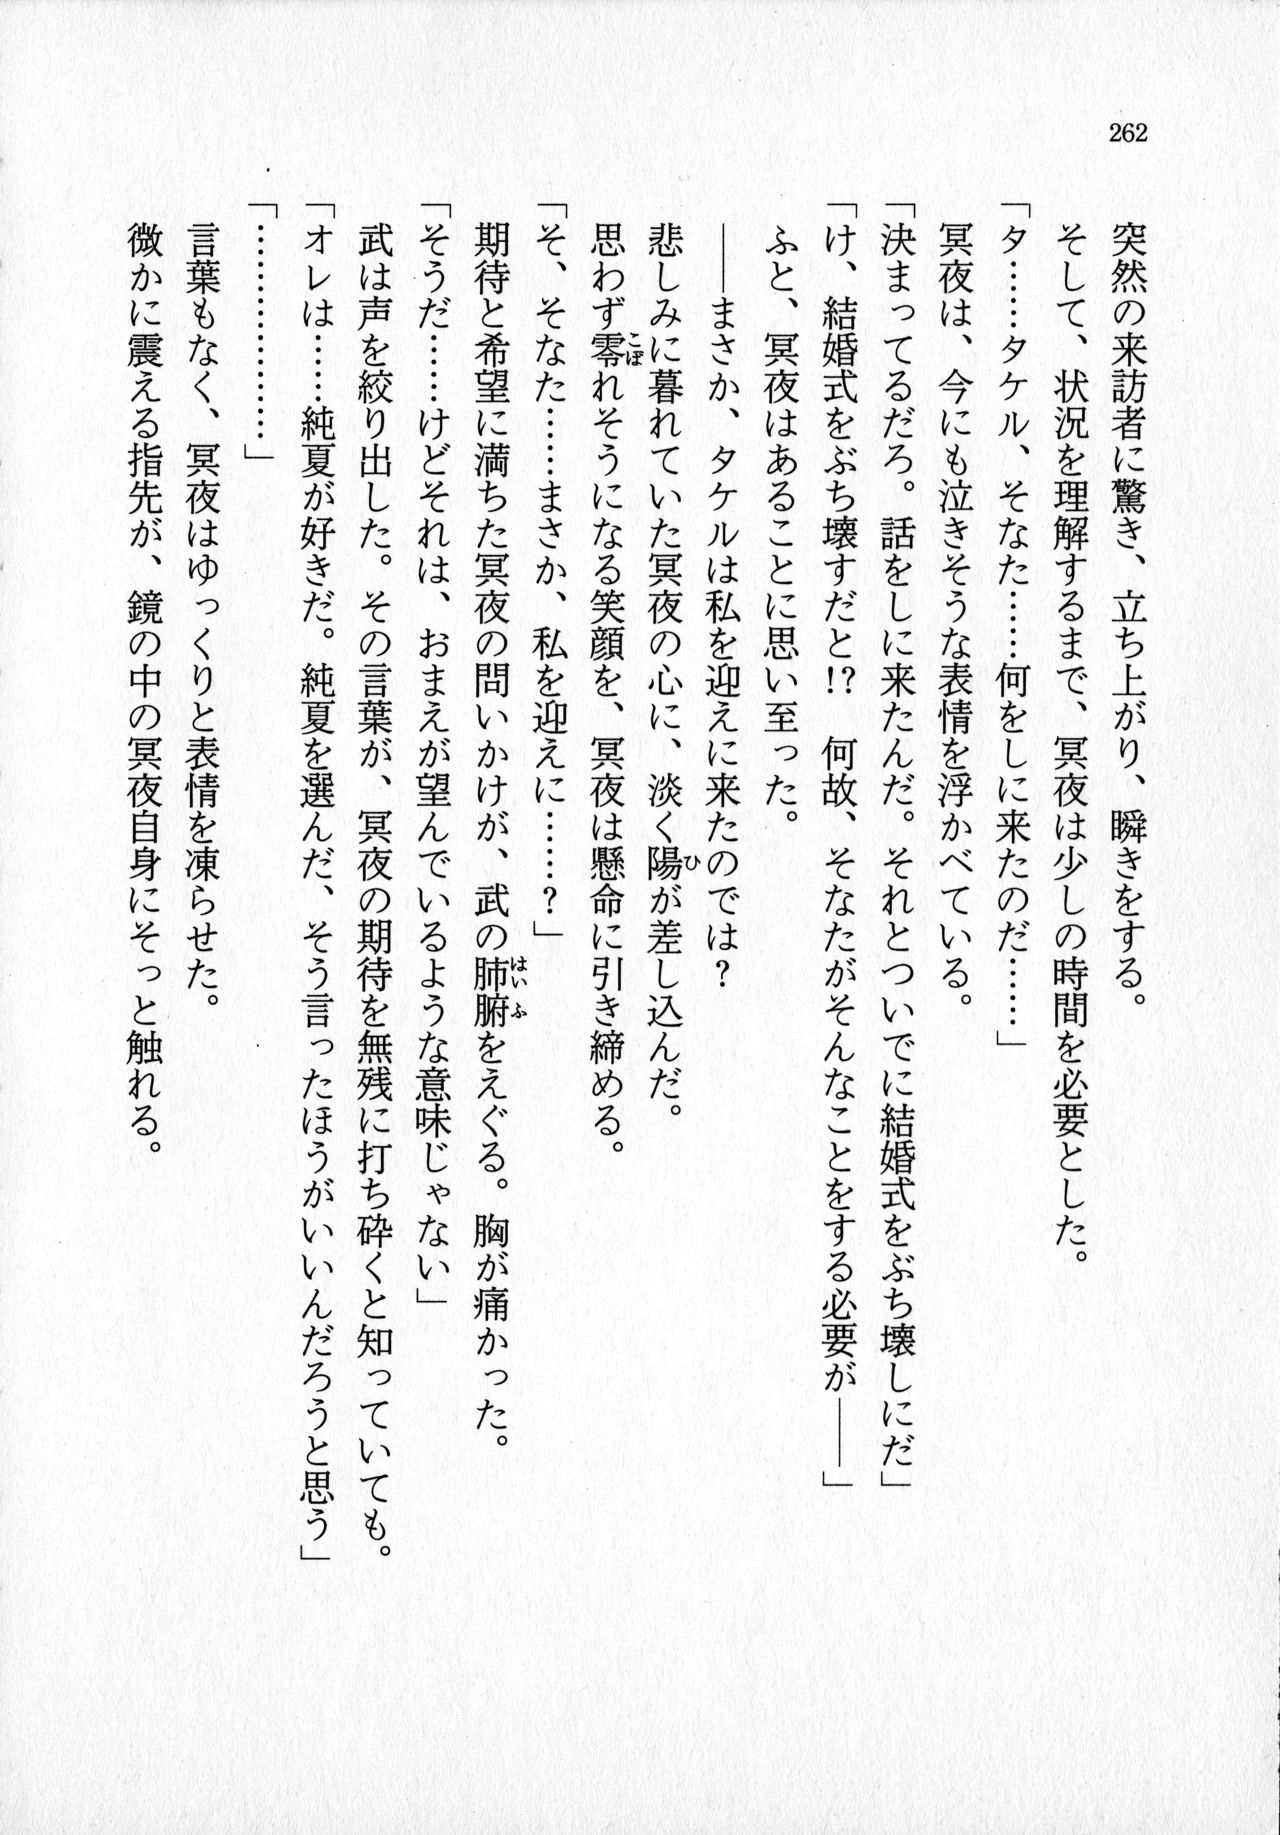 262
突然の来訪者に驚き、立ち上がり、瞬きをする。
そして、状況を理解するまで、冥夜は少しの時間を必要とした。
「タ……タケル、そなた……何をしに来たのだ……」
冥夜は、今にも泣きそうな表情を浮かべている。
「決まってるだろ。話をしに来たんだ。それとついでに結婚式をぶち壊しにだ」
「け、結婚式をぶち壊すだと!?　何故、そなたがそんなことをする必要が――」
ふと、冥夜はあることに思い至った。
――まさか、タケルは私を迎えに来たのでは？
悲しみに暮れていた冥夜の心に、淡く陽が差し込んだ。
思わず零れそうになる笑顔を、冥夜は懸命に引き締める。
「そ、そなた……まさか、私を迎えに……？」
期待と希望に満ちた冥夜の問いかけが、武の肺腑をえぐる。胸が痛かった。
「そうだ……けどそれは、おまえが望んでいるような意味じゃない」
武は声を絞り出した。その言葉が、冥夜の期待を無残に打ち砕くと知っていても。
「オレは……純夏が好きだ。純夏を選んだ、そう言ったほうがいいんだろうと思う」
「………………」
言葉もなく、冥夜はゆっくりと表情を凍らせた。
微かに震える指先が、鏡の中の冥夜自身にそっと触れる。